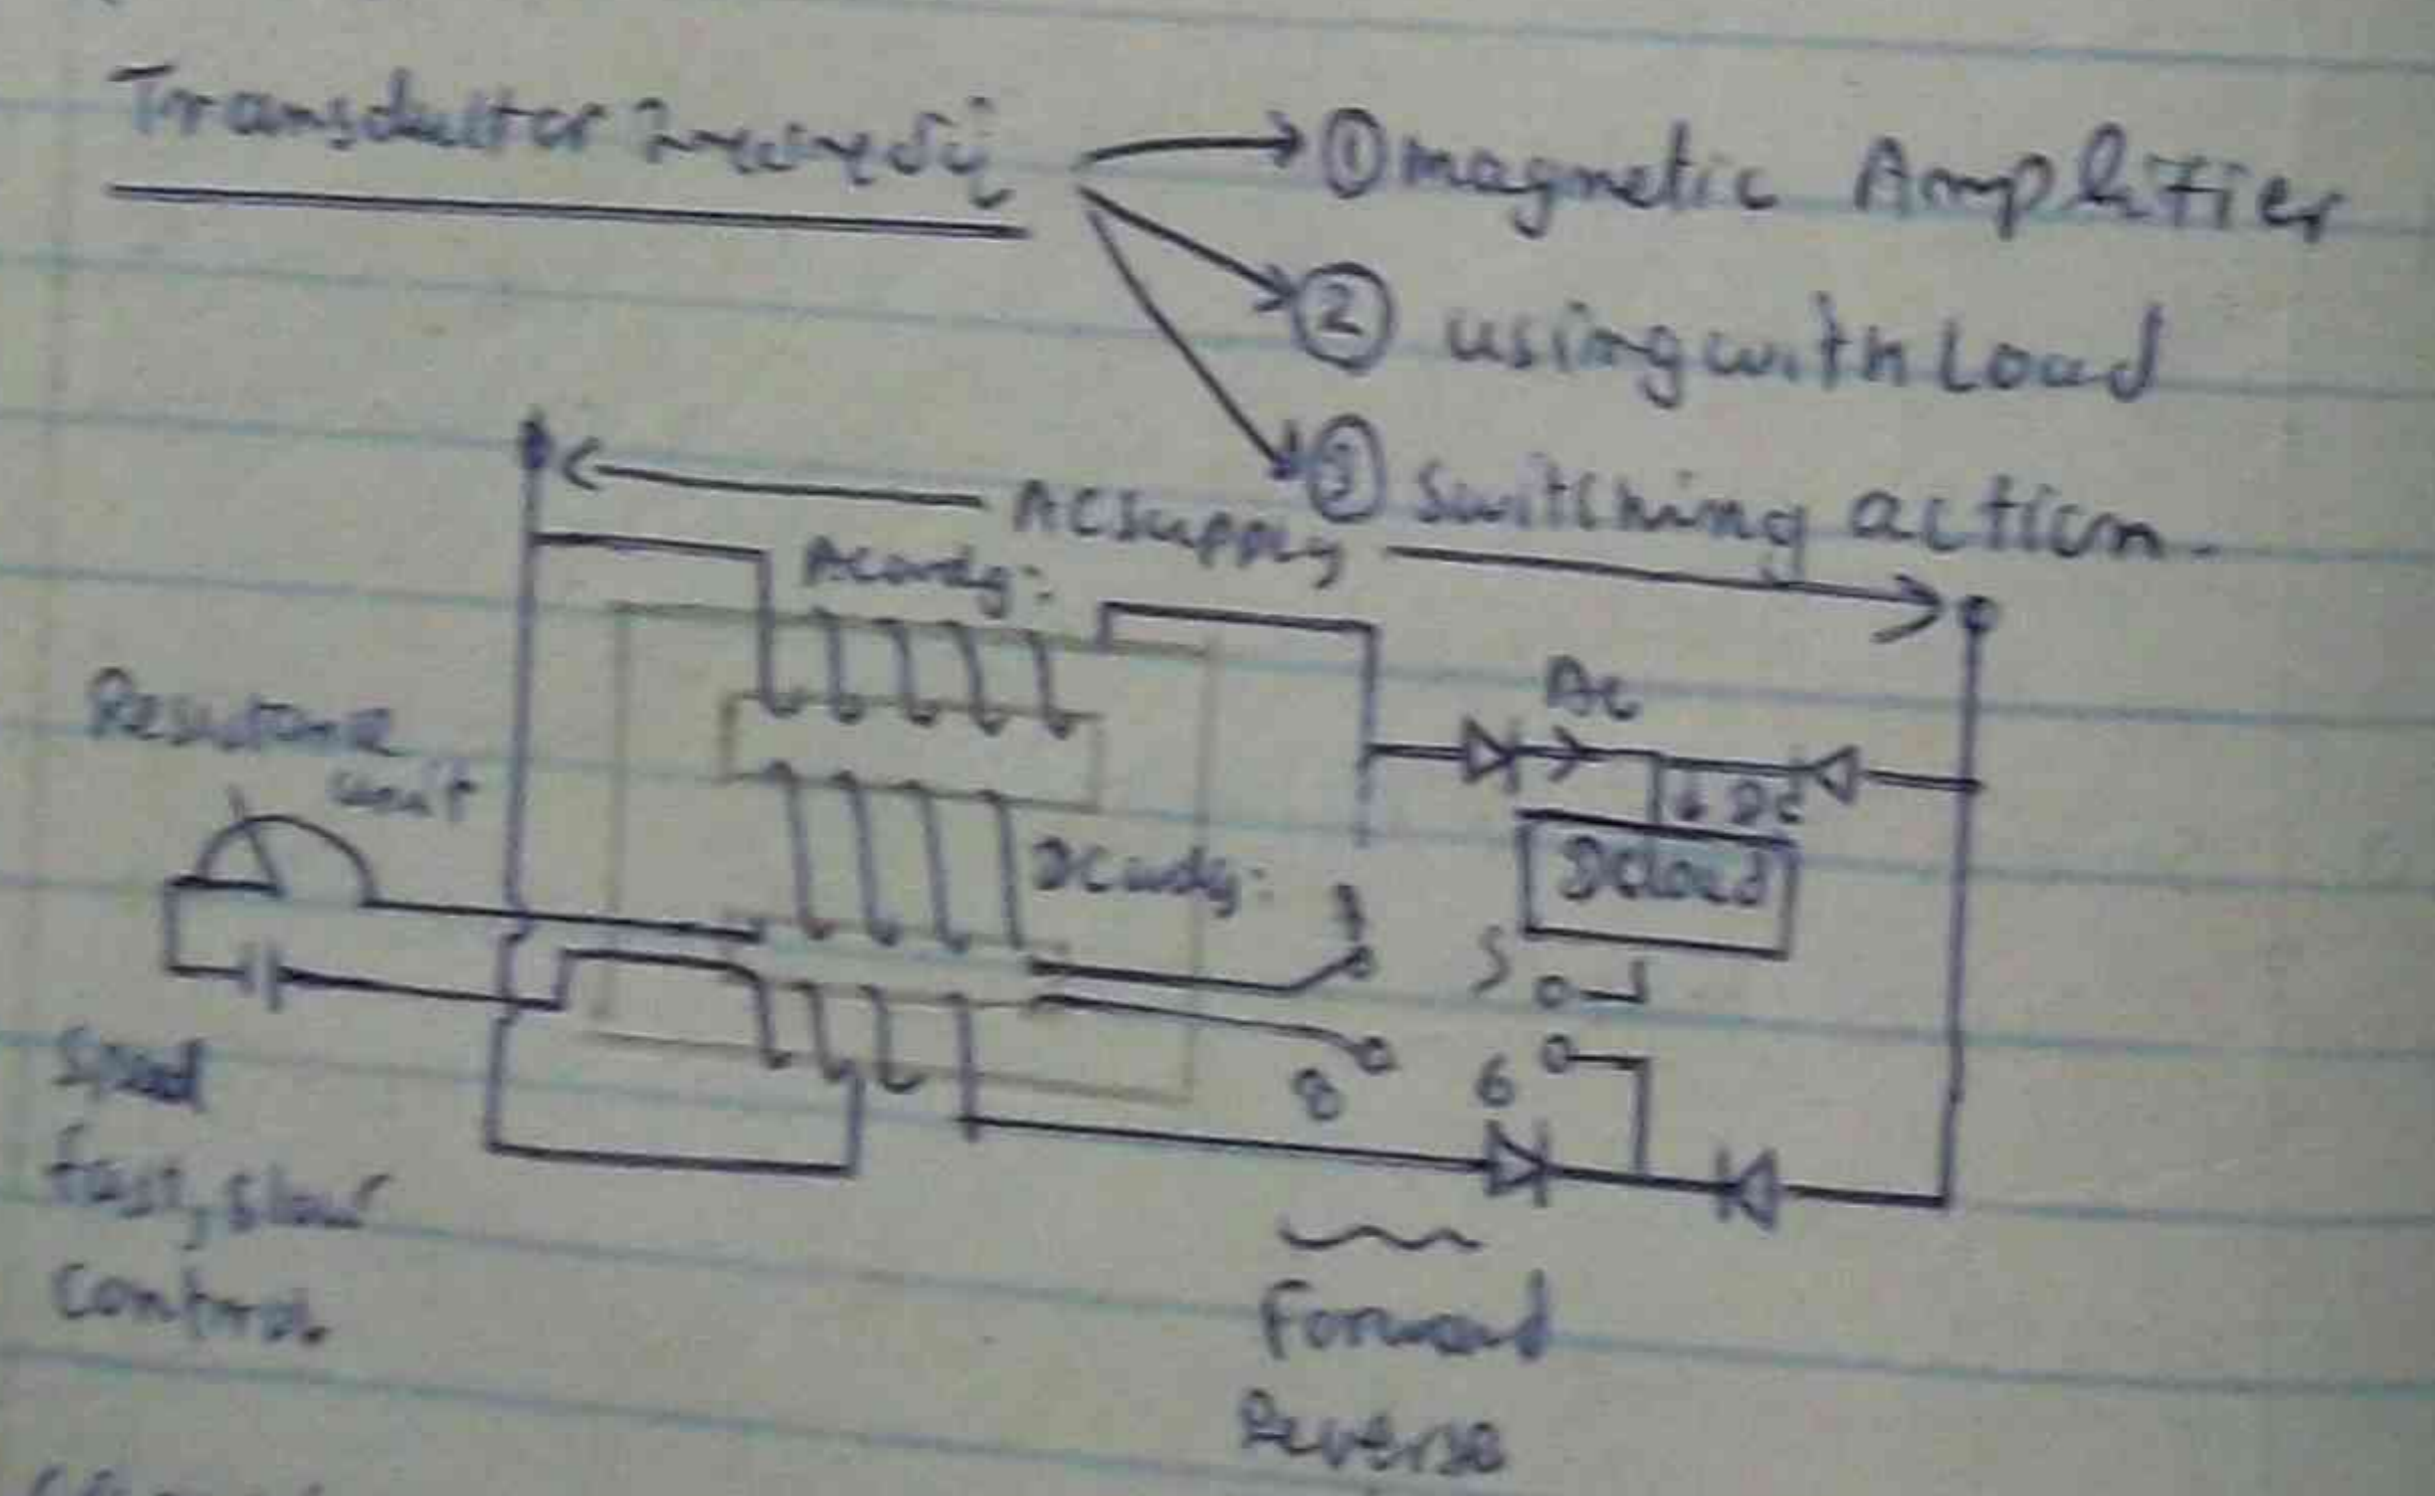 Transductor
① magnetic Amplifier
② using with Load
③ Switching action.
AC supply
AC wdg:
Resistance
unit
AC
↓ DC
DC load
DC wdg:
5
6
8
Speed
fast, slow
Control
Forward
Reverse